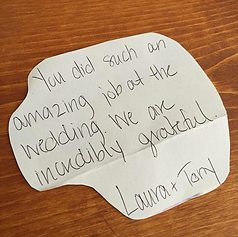 You did such an
amazing job at the
wedding. We are
incredibly grateful.
Laura + Tory